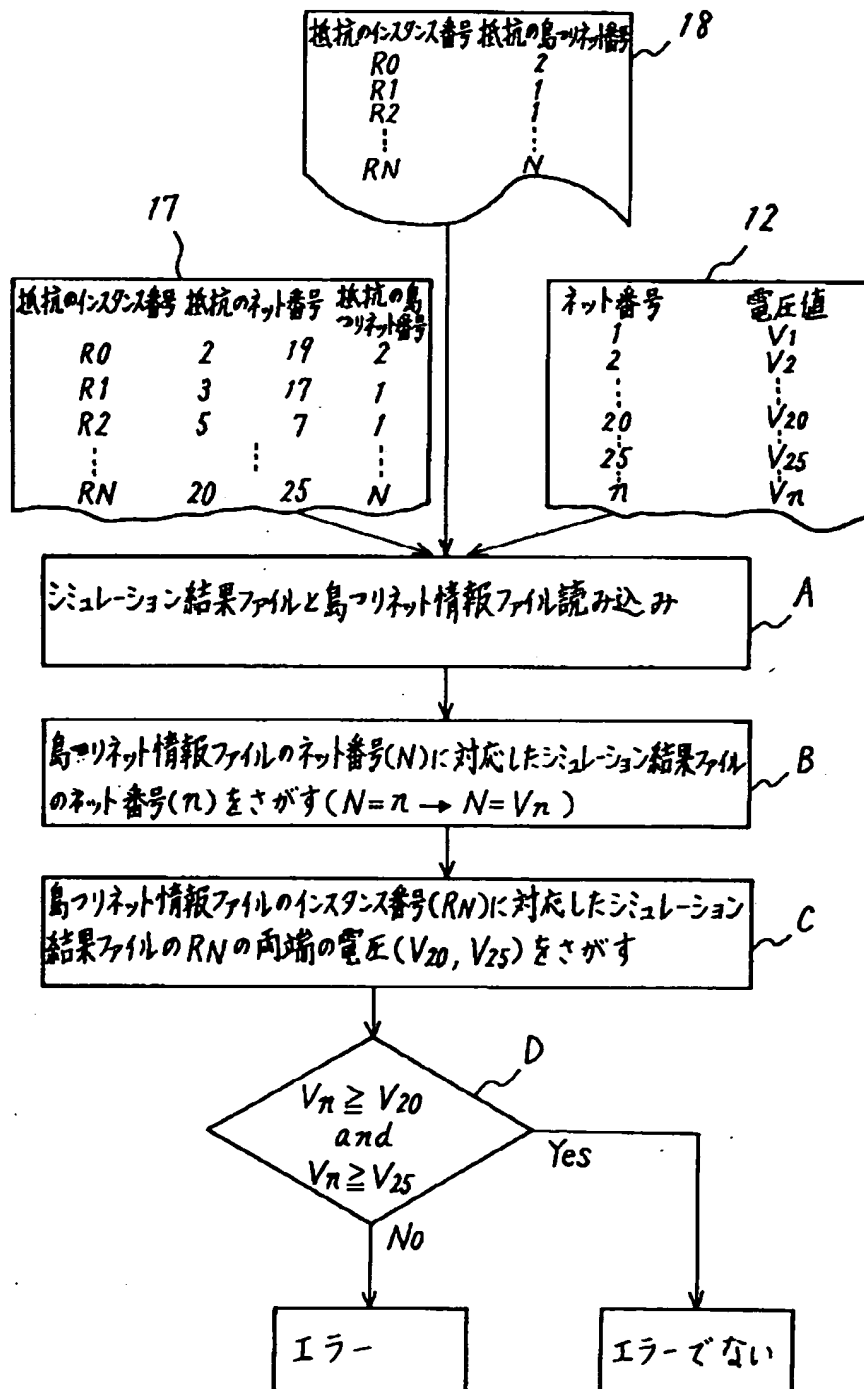 抵抗のインスタンス番号 抵抗の島つリネット番号
18
R0 2
R1 1
R2 1
RN N
17
抵抗のインスタンス番号 抵抗のネット番号 抵抗の島
つリネット番号
R0 2 19 2
R1 3 17 1
R2 5 7 1
RN 20 25 N
12
ネット番号 電圧値
1 V1
2 V2
20 V20
25 V25
n Vn
シミュレーション結果ファイルと島つリネット情報ファイル読み込み
A
島つリネット情報ファイルのネット番号(N)に対応したシミュレーション結果ファイル
のネット番号(n)をさがす(N=n → N=Vn)
B
島つリネット情報ファイルのインスタンス番号(RN)に対応したシミュレーション
結果ファイルのRNの両端の電圧(V20, V25)をさがす
C
D
Vn ≧ V20
and
Vn ≧ V25
Yes
No
エラー
エラーでない